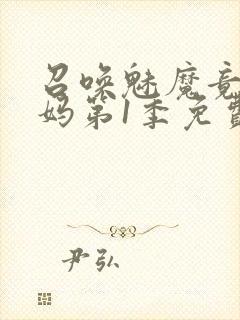 召唤魅魔竟
妈第1季免
尹弘